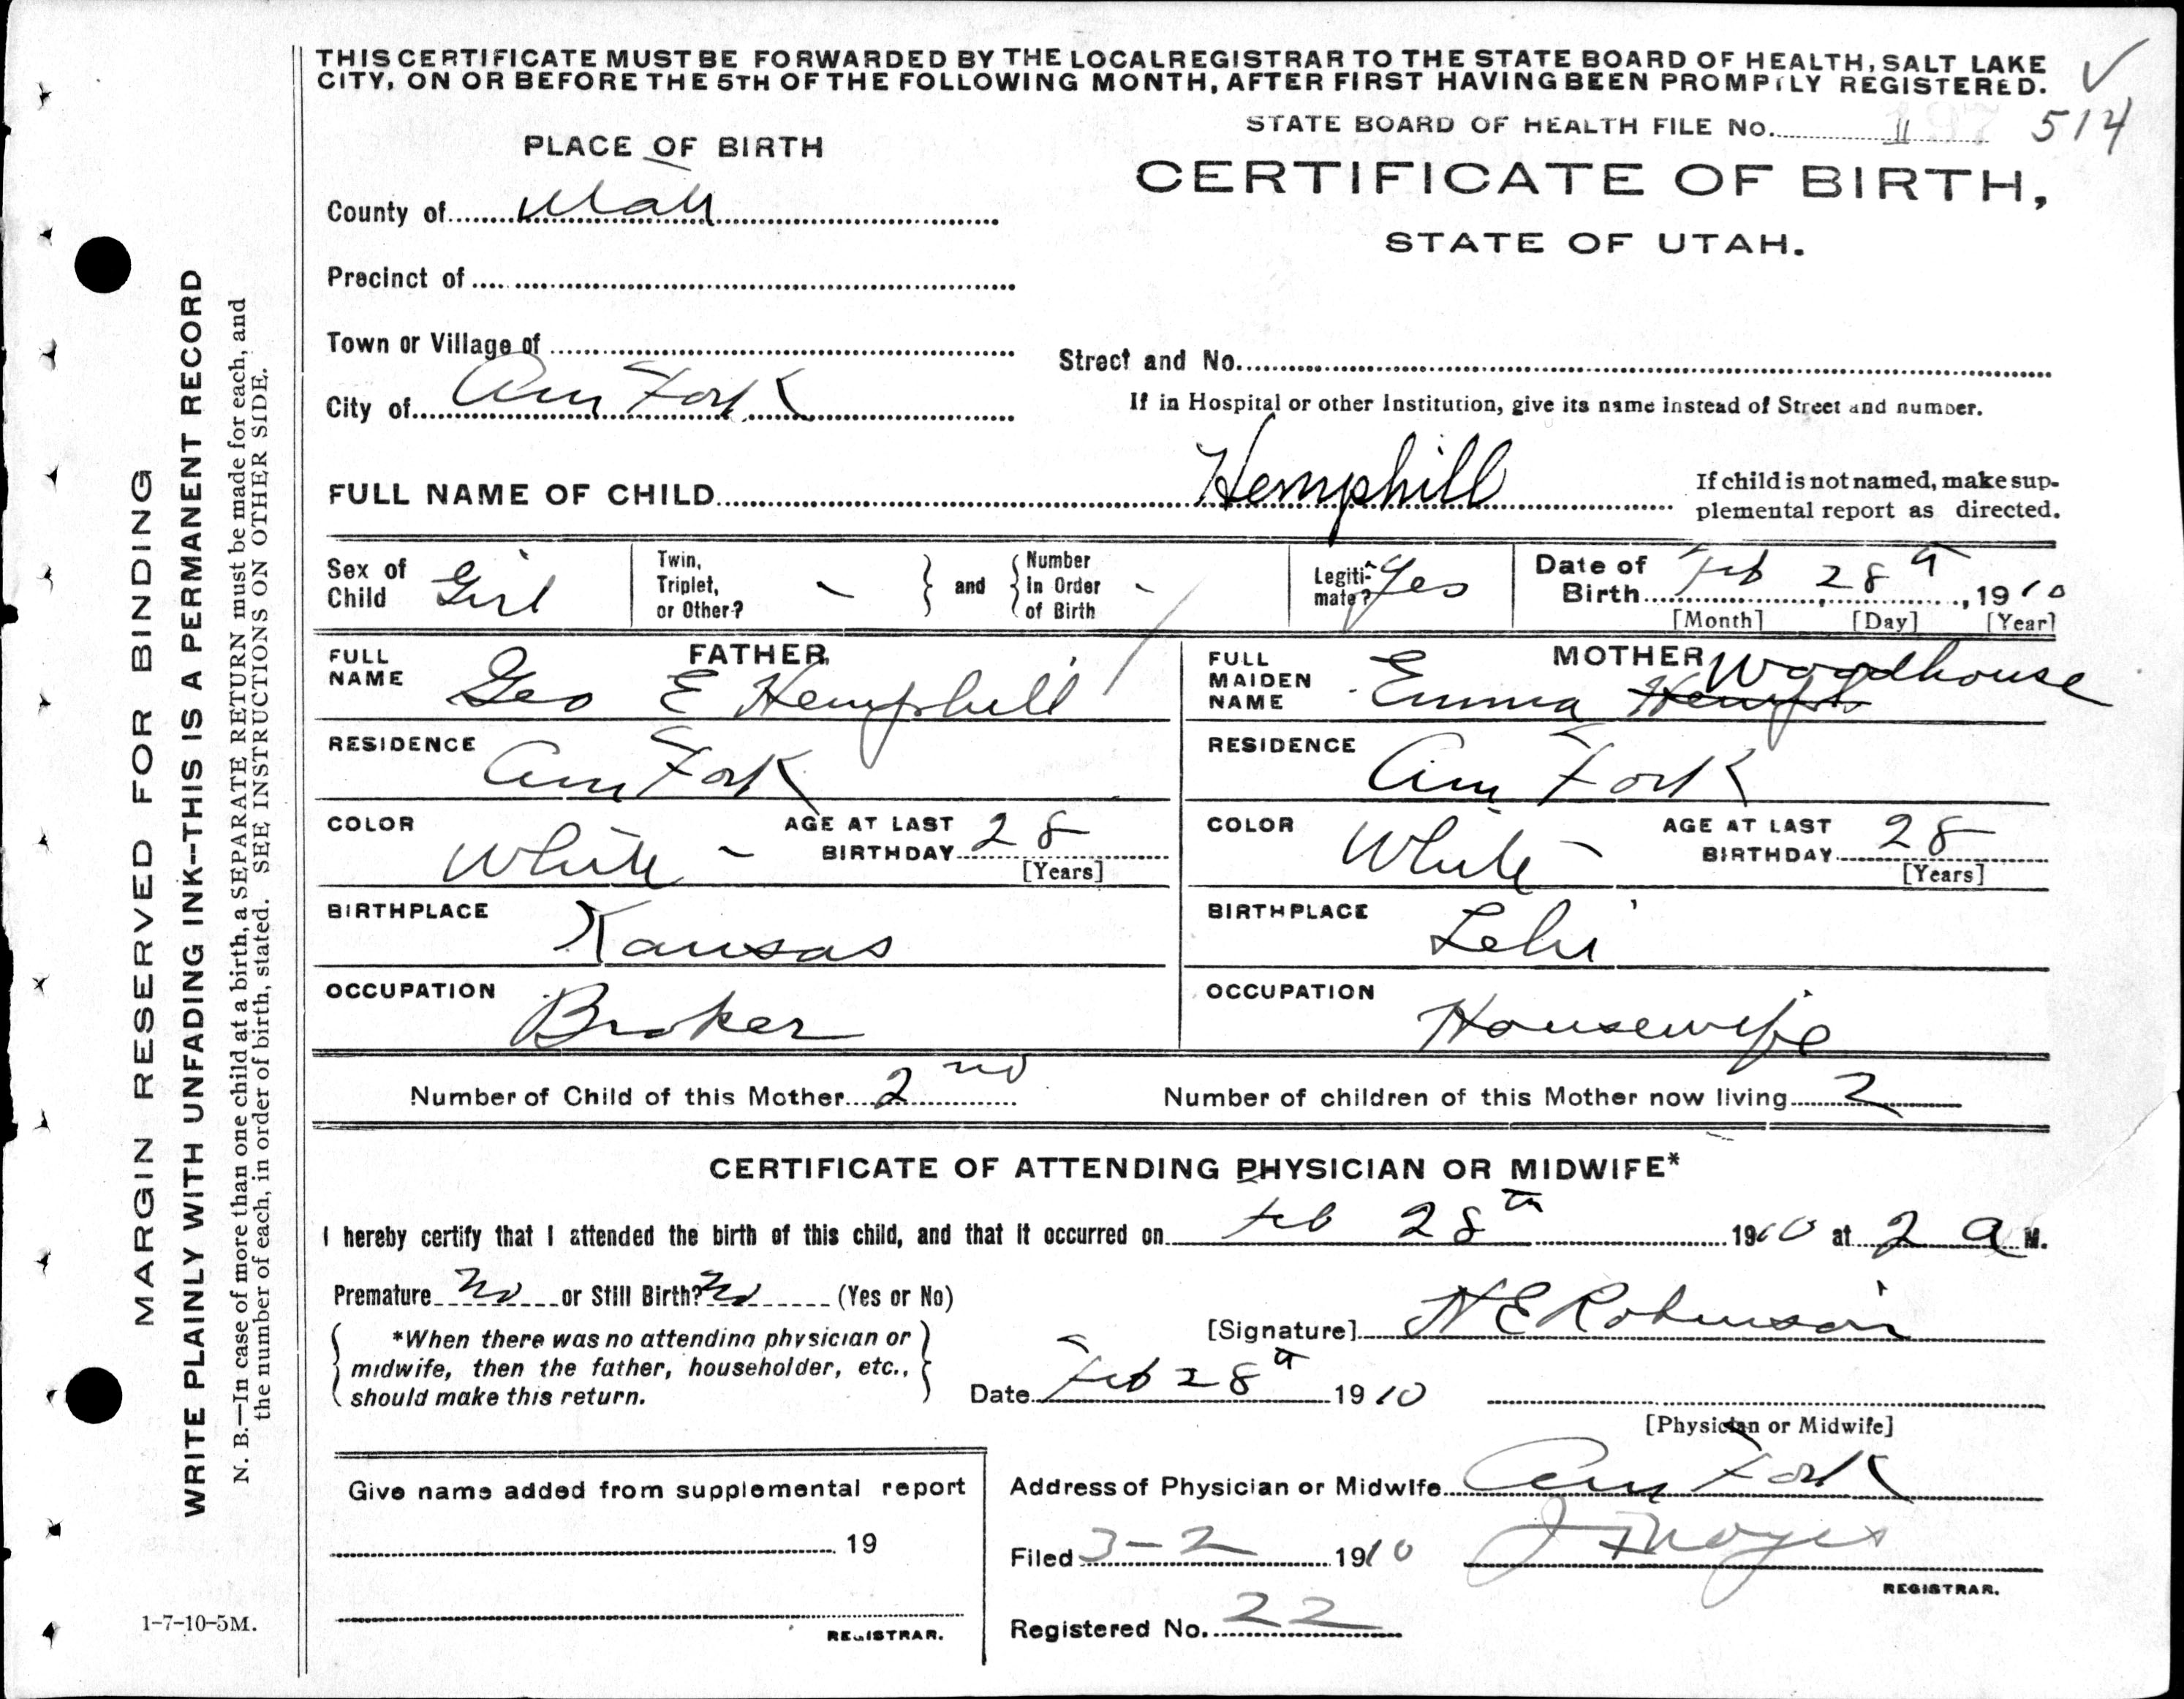 THIS CERTIFICATE MUST BE FORWARDED BY THE LOCAL REGISTRAR TO THE STATE BOARD OF HEALTH, SALT LAKE
CITY, ON OR BEFORE THE 5TH OF THE FOLLOWING MONTH, AFTER FIRST HAVING BEEN PROMPTLY REGISTERED.
STATE BOARD OF HEALTH FILE No. 514
PLACE OF BIRTH
CERTIFICATE OF BIRTH,
STATE OF UTAH.
County of Utah
Precinct of
Town or Village of
City of Am Fork
Street and No.
If in Hospital or other Institution, give its name instead of Street and number.
FULL NAME OF CHILD Hemphill
If child is not named, make sup-
plemental report as directed.
Sex of Child Girl
Twin, Triplet, or Other? -
and
Number In Order of Birth -
Legiti-mate? Yes
Date of Birth Feb 28th, 1910
[Month] [Day] [Year]
FATHER
FULL NAME Geo E Hemphill
RESIDENCE Am Fork
COLOR White -
AGE AT LAST BIRTHDAY 28
[Years]
BIRTHPLACE Kansas
OCCUPATION Broker
MOTHER
FULL MAIDEN NAME Emma Hemph Woodhouse
RESIDENCE Am Fork
COLOR White -
AGE AT LAST BIRTHDAY 28
[Years]
BIRTHPLACE Lehi
OCCUPATION Housewife
Number of Child of this Mother 2nd
Number of children of this Mother now living 2
CERTIFICATE OF ATTENDING PHYSICIAN OR MIDWIFE*
I hereby certify that I attended the birth of this child, and that it occurred on Feb 28th 1910 at 2 a M.
Premature No or Still Birth? No (Yes or No)
*When there was no attending physician or
midwife, then the father, householder, etc.,
should make this return.
[Signature] N E Robinson
Date Feb 28th 1910
[Physician or Midwife]
Give name added from supplemental report
19
REGISTRAR.
Address of Physician or Midwife Am Fork
Filed 3-2 1910 J Noyes
REGISTRAR.
Registered No. 22
1-7-10-5M.
MARGIN RESERVED FOR BINDING
WRITE PLAINLY WITH UNFADING INK--THIS IS A PERMANENT RECORD
N. B.—In case of more than one child at a birth, a SEPARATE RETURN must be made for each, and
the number of each, in order of birth, stated. SEE INSTRUCTIONS ON OTHER SIDE.